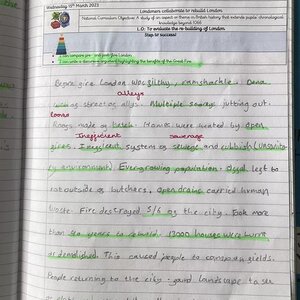 Wednesday 15th March 2023
Londoners collaborate to rebuild London
National Curriculum Objective: A study of an aspect or theme in British history that extends pupils' chronological
knowledge beyond 1066
L.O: To evaluate the re-building of London
Steps to success!
I can compare pre- and post-fire London.
I can write a balanced argument highlighting the benefits of the Great Fire.
Before fire London was filthy, ramshackle. Dena
alleys
of streat or allys. Multiple storeys jutting out.
Looms
Roofs made of Homes were heated by open
Inefficient sewerage
fires. system of sewege and rubbish
environment) Evergrowing population. left to
rot outside of butchers, open drains carried human
waste. Fire destroyed 5/6 of the city. Took more
than years to rebuild. 13000 houses were burnt
or demolished. This caused people to camp on fields.
People returning to the city - landscape to